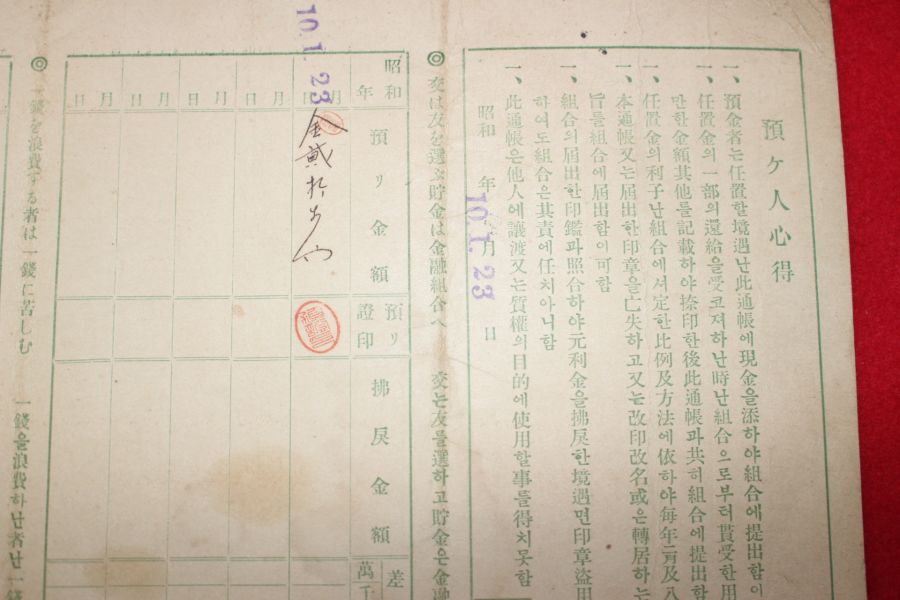 預ケ人心得
一、預金者는任置할境遇난此通帳에現金을添하야組合에提出함이
任置金의一部의還給을受코져하난時난組合으로부터貰受한用
만한金額其他를記載하야捺印한後此通帳과共히組合에提出함
一、任置金의利子난組合에셔定한比例及方法에依하야每年二月及八
一、本通帳又는届出한印章을亡失하고又는改印改名或은轉居하는
旨를組合에届出함이可함
一、組合의届出한印鑑과照合하야元利金을拂戻한境遇면印章盜用
하여도組合은其責에任치아니함
一、此通帳은他人에讓渡又는質權의目的에使用할事를得치못함
昭和 年 月 日
10.1.23
◎ 交は友を選ぶ貯金は金融組合へ 交는友를選하고貯金은金融
昭和 年 預リ金額 預リ證印 拂戻金額 差
萬
月 日
10.1.23
金貳拾
月 日
月 日
月 日
月 日
◎ 一錢を浪費する者は一錢に苦しむ 一錢을浪費하난者난一錢